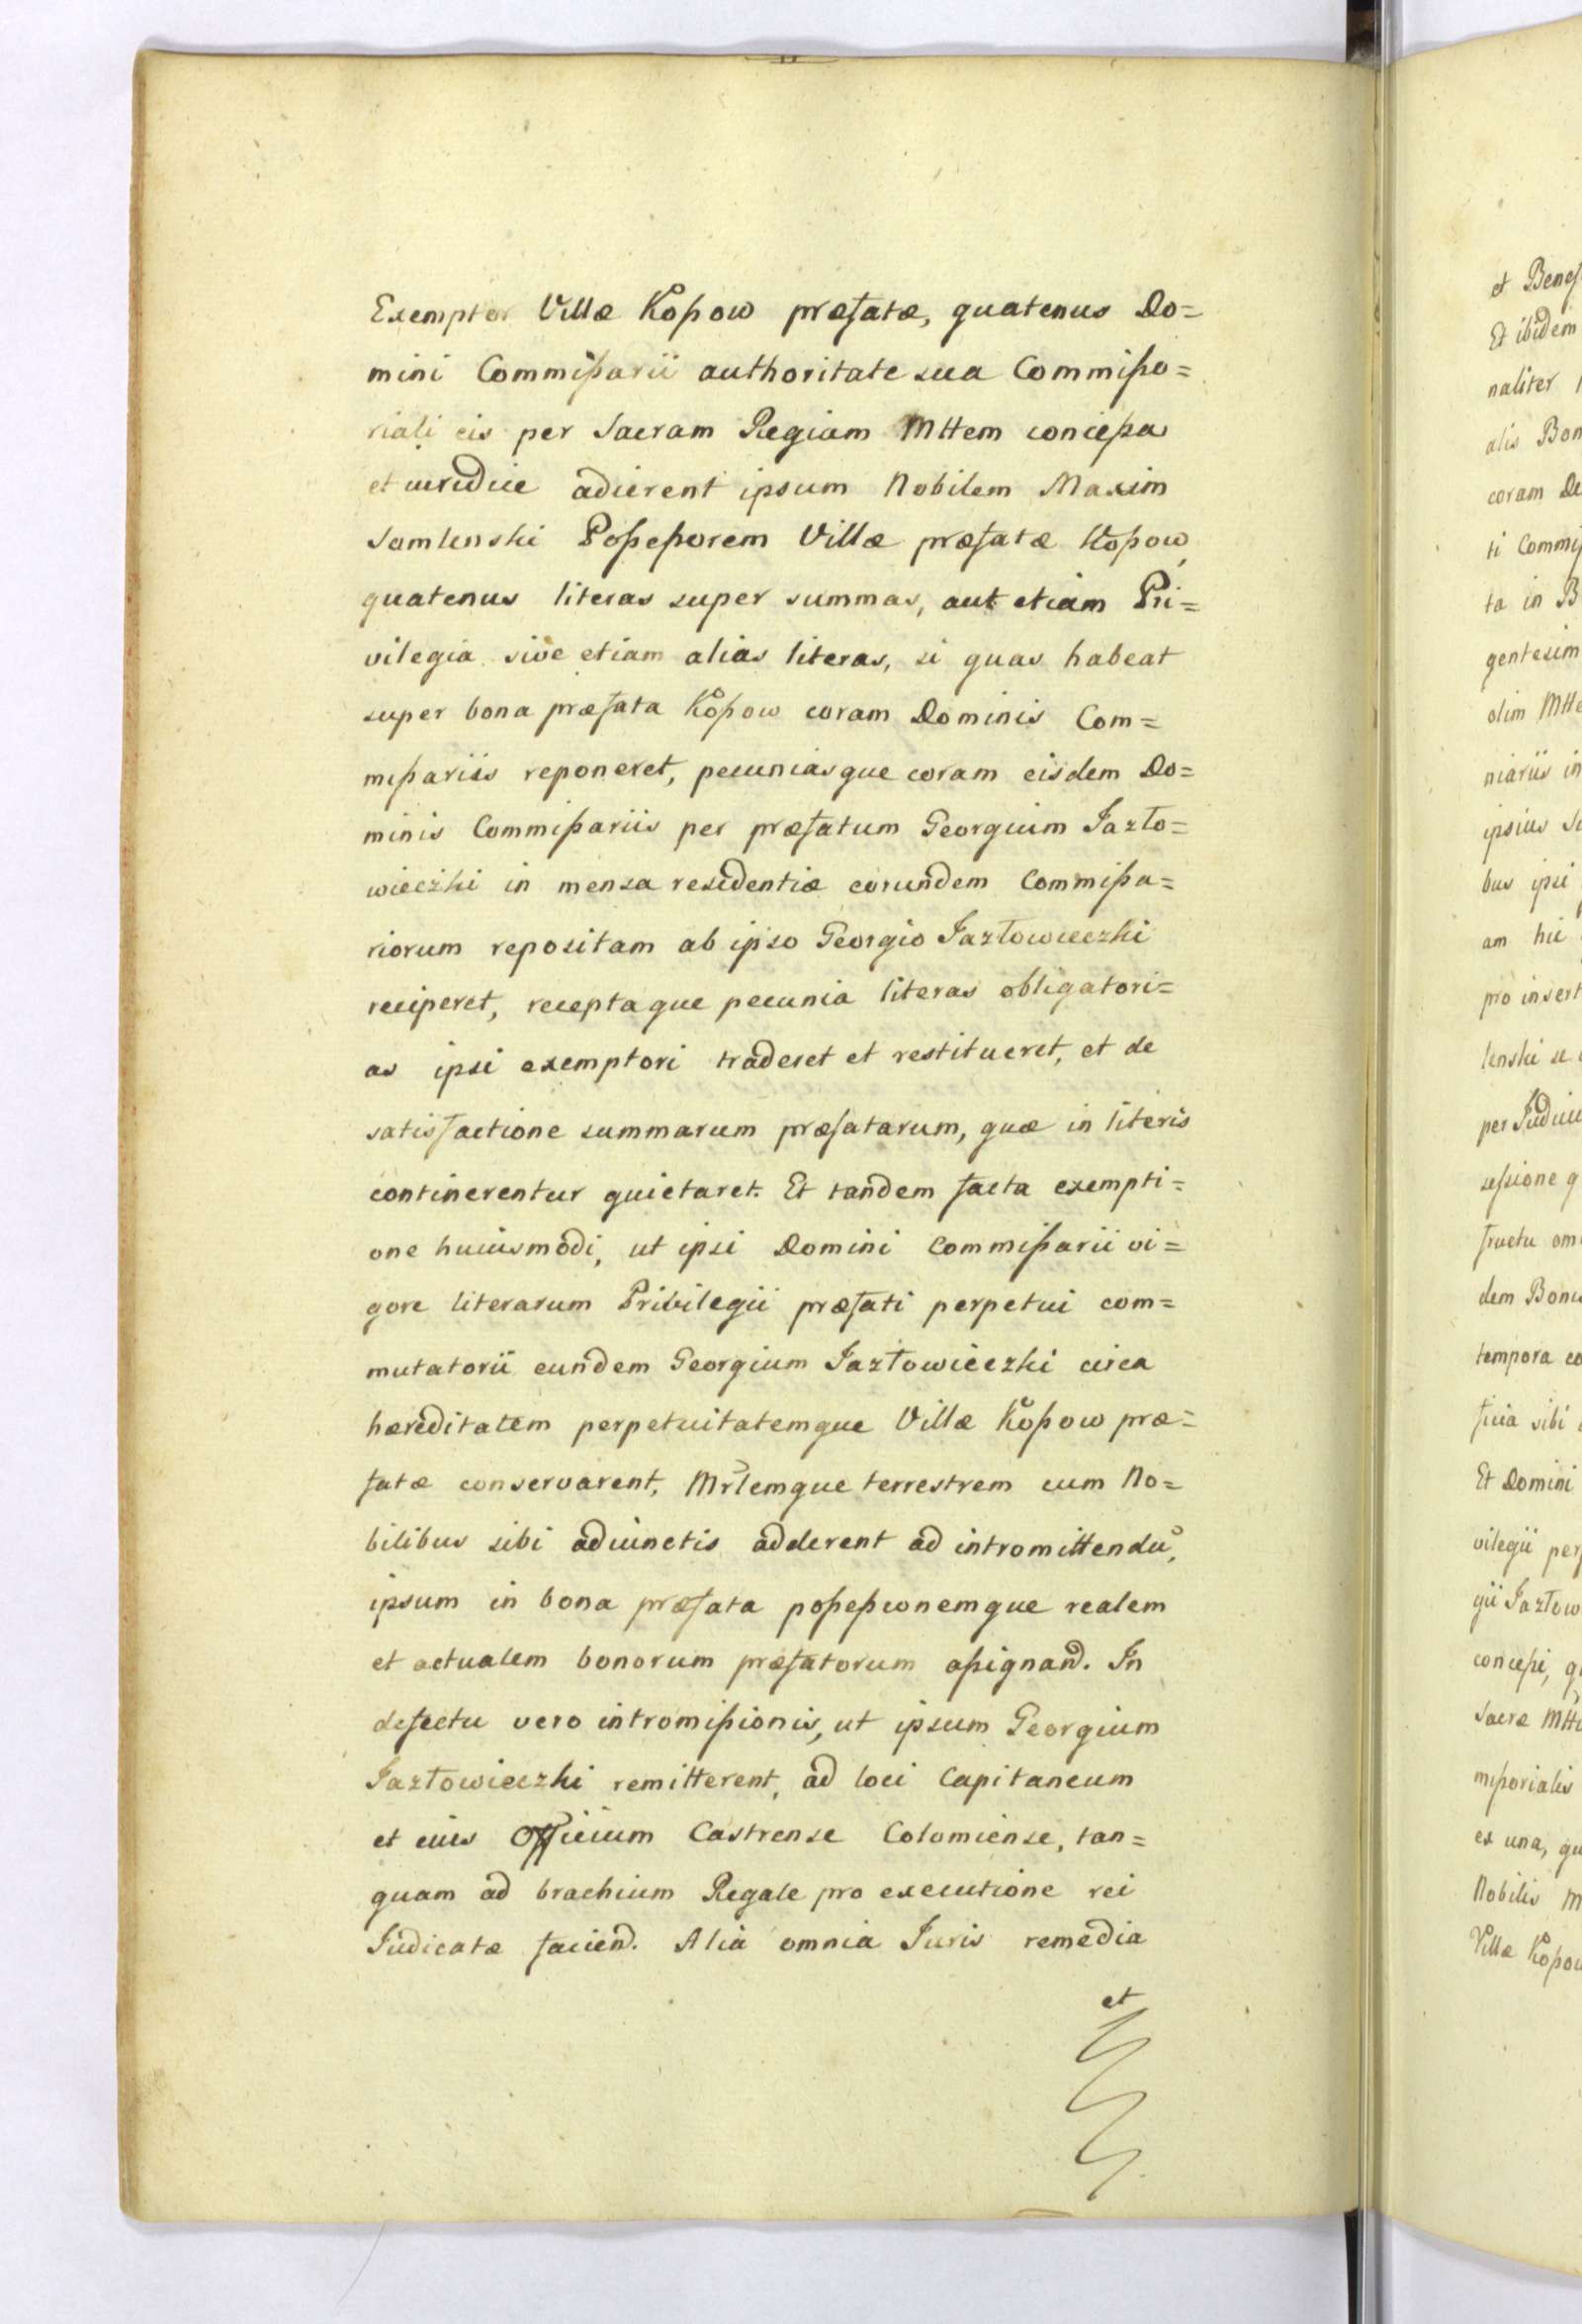 Exemptor Villæ Kossow præfatæ, quatenus Do=
mini Commissarii authoritate sua Commisso=
riali eis per Sacram Regiam Mttem concessa
et iuridice adierent ipsum Nobilem Maxim
Samlenski Possessorem Villæ præfatæ Kossow,
quatenus literas super summas, aut etiam Pri=
vilegia sive etiam alias literas, si quas habeat
super bona præfata Kossow coram Dominis Com=
missariis reponeret, pecuniasque coram eisdem Do=
minis Commissariis per præfatum Georgium Jazło=
wieczki in mensa residentiæ eorundem Commissa=
riorum repositam ab ipso Georgio Jazłowieczki
reciperet, receptaque pecunia literas obligatori=
as ipsi exemptori traderet et restitueret, et de
satisfactione summarum præfatarum, quæ in literis
continerentur quietaret. Et tandem facta exempti=
one huiusmodi, ut ipsi Domini Commissarii vi=
gore literarum Pribilegii præfati perpetui com=
mutatorii eundem Georgium Jazłowieczki circa
hæreditatem perpetuitatemque Villæ Kossow præ=
fatæ conservarent, Mrlemque terrestrem cum No=
bilibus sibi adiunctis adderent ad intromittendũ,
ipsum in bona præfata possessionemque realem
et actualem bonorum præfatorum assignand. In
defectu vero intromissionis, ut ipsum Georgium
Jazłowieczki remitterent, ad loci Capitaneum
et eius Officium Castrense Colomiense, tan=
quam ad brachium Regale pro executione rei
Judicatæ faciend. Alia omnia Juris remedia
et
et
Et ibidem
naliter
alis
coram
ti
ta in
olim
niariis in
ipsius
bus ipsi
am hic
pro
lenski
per
sessione
fructu
dem
tempora
sibi
Et Domini
vilegii
concessi,
Sacræ
missorialis
ex una,
Nobilis
Villæ